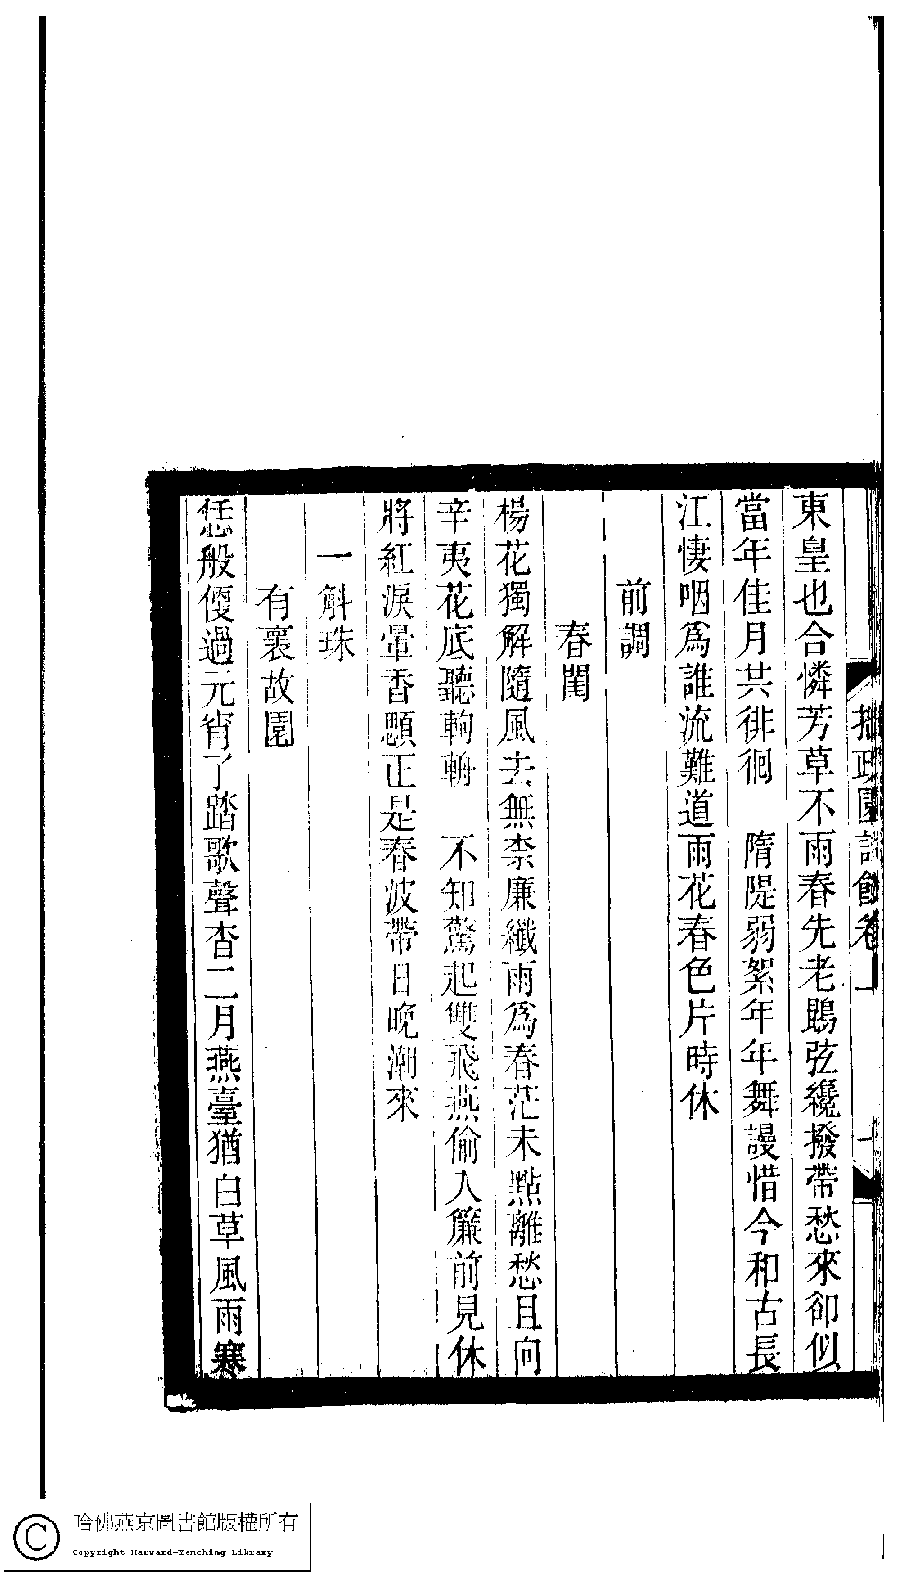 拙政園詩餘卷上
東皇也合憐芳草不雨春先老鵾弦纔撥帶愁來卻似
當年佳月共徘徊　隋隄弱絮年年舞謾惜今和古長
江悽咽爲誰流難道雨花春色片時休
前調
春閨
楊花獨解隨風去無柰廉纖雨爲春茫未點離愁且向
辛夷花底聽輈輈　不知驚起雙飛燕偷入簾前見休
將紅淚暈香顋正是春波帶日晚潮來
一斛珠
有褱故園
恁般傻過元宵了踏歌聲杳二月燕臺猶白草風雨寒
哈佛燕京圖書館版權所有
Copyright Harvard-Yenching Library